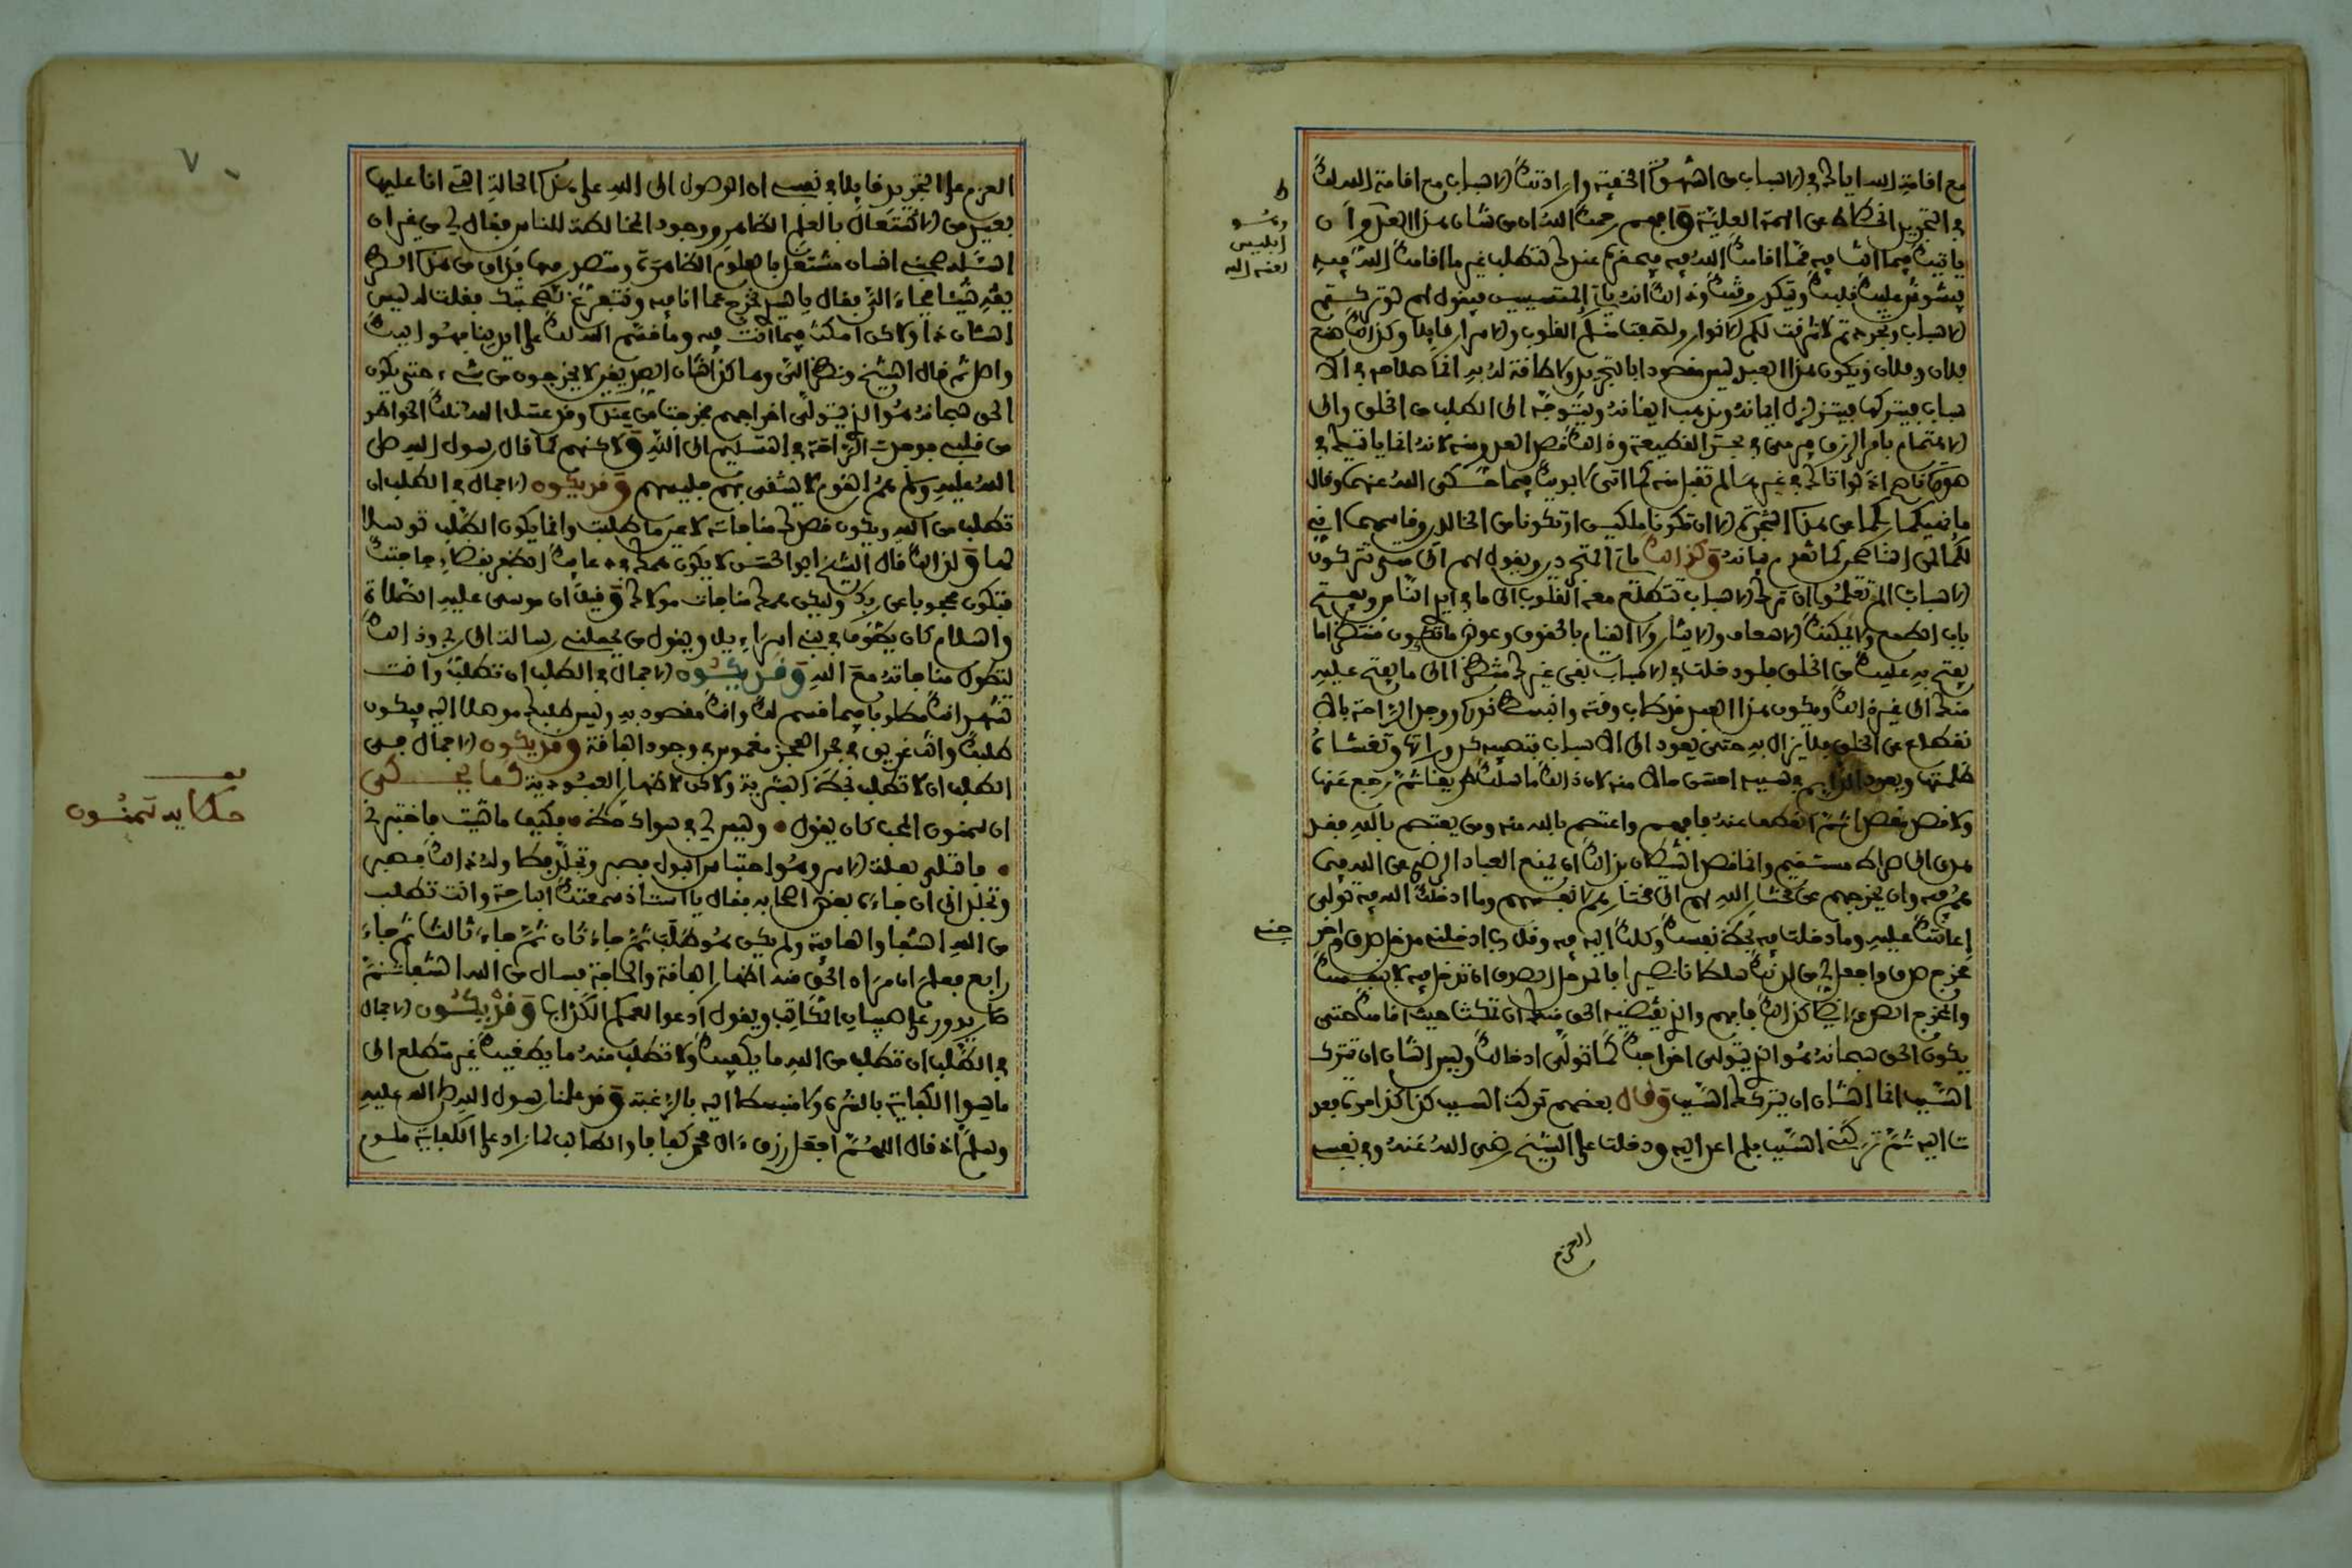 مع اقامة الله اياك في الاسباب من الشهوة الخفية وارادتك الاسباب مع اقامة الله لك
في التجريد انحطاط عن الهمة العلية وافهم رحمك الله ان من شان هذا العدو ان
ياتيك فيما انت فيه مما اقامك الله فيه فيحقره عندك لتطلب غير ما اقامك الله فيه
فيشوش عليك قلبك ويكدر وقتك وذلك انه ياتي للمتسببين فيقول لهم لو تركتم
الاسباب وتجردتم لاشرقت لكم الانوار ولصفت منكم القلوب والاسرار قايلا وكذلك صنع
فلان وفلان ويكون هذا العبد ليس مقصودا بالتجريد ولا طاقة له به انما صلاحه في الا
سباب فيتركها فيتزلزل ايمانه ويذهب ايقانه ويتوجه الى الطلب من الخلق والى
الاهتمام بامر الرزق فيرمى في بحر القطيعة وذلك قصد العدو منه لانه انما ياتيك في
صورة ناصح اذ لو اتاك في غيرها لم تقبل منه كما اتى ابويك فيما حكى الله عنهما وقال
ما نهيكما ربكما عن هذه الشجرة الا ان تكونا ملكين او تكونا من الخالدين وقاسمهما اني
لكما لمن الناصحين كما تقدم بيانه وكذلك ياتي المتجردين ويقول لهم الى متى تتركون
الاسباب الم تعلموا ان ترك الاسباب تتطلع معه القلوب الى ما في ايدي الناس ويفتح
باب الطمع ولا يمكنك الاسعاف والايثار ولا القيام بالحقوق وعوض ما تكون منتظرا ما
يفتح به عليك من الخلق فلو دخلت في الاسباب بقي غيرك منتظرا الى ما يفتح عليه
منك الى غير ذلك ويكون هذا العبد قد طاب وقته وانبسط نوره ووجد الراحة بالا
نقطاع عن الخلق فلا يزال به حتى يعود الى الاسباب فتصيبه كدوراتها وتغشاه
ظلمتها ويعود الدايم في سببه احسن حالا منه لان ذلك ما سلك طريقا ثم رجع عنها
ولا قصد مقصدا ثم انعطف عنه فافهم واعتصم بالله منه ومن يعتصم بالله فقد
هدى الى صراط مستقيم وانما قصد الشيطان بذلك ان يمنع العباد الرضى عن الله فيما
هم فيه وان يخرجهم عن مختار الله لهم الى مختارهم لانفسهم وما ادخلك الله فيه تولى
اعانتك عليه وما دخلت فيه بحكم نفسك وكلك اليه فيه وقل رب ادخلني مدخل صدق واخرجني
مخرج صدق واجعل لي من لدنك سلطانا نصيرا فالمدخل الصدق ان تدخل فيه لا بنفسك
والمخرج الصدق ايضا كذلك فافهم والذي يقتضيه الحق منك ان تمكث حيث اقامك حتى
يكون الحق سبحانه هو الذي يتولى اخراجك كما تولى ادخالك وليس الشان ان تترك
السبب انما الشان ان يتركك السبب وقال بعضهم تركت السبب كذا كذا مرة فعد
ت اليه ثم تركني السبب فلم اعد اليه ودخلت على الشيخ رضي الله عنه وفي نفسي
العزم
وسوا
ابليس
لعنه الله
العزم على التجريد قايلا في نفسي ان الوصول الى الله على هذه الحالة التي انا عليها
بعيد من الاشتغال بالعلم الظاهر ووجود المخالطة للناس فقال لي من غير ان
اساله صحبني انسان مشتغل بالعلوم الظاهرة ومتصدر فيها فذاق من هذا الطريق
شيئا فجاء الي فقال يا سيدي اخرج عما انا فيه ونتفرغ لصحبتك فقلت له ليس
الشان ذا ولاكن امكث فيما انت فيه وما قسم الله لك على ايدينا فهو اليك
واصل ثم قال الشيخ ونظر الي وهاكذا شان الصديقين لا يخرجون من شيء حتى يكون
الحق سبحانه هو الذي يتولى اخراجهم فخرجت من عنده وقد غسل الله تلك الخواطر
من قلبي فوجدت الراحة في التسليم الى الله ولاكنهم كما قال رسول الله صلى
الله عليه وسلم هم القوم لا يشقى بهم جليسهم وقد يكون الاجمال في الطلب ان
تطلب من الله ويكون قصدك مناجاته لا عين ما طلبت وانما يكون الطلب توسلا
لها ولذلك قال الشيخ ابو الحسن لا يكون همك في دعائك الظفر بقضاء حاجتك
فتكون محجوبا عن ربك وليكن همك مناجات مولاك وقيل ان موسى عليه الصلاة
والسلام كان يطوف في بني اسراءيل ويقول من يحملني رسالة الى ربي وذلك
لتطول مناجاته مع الله وقد يكون الاجمال في الطلب ان تطلب وانت
تشهد انك مطلوب فيما قسم لك وانك مقصود به وليس طلبك موصلا اليه فيكون
طلبك وانت غريق في بحر العجز مغموس في وجود الفاقة وقد يكون الاجمال في
الطلب ان لا تطلب لحظ البشرية ولاكن لاظهار العبودية كما يحكى
ان سمنون المحب كان يقول • وليس لي في سواك حظ • فكيف ما شيت فاختبرني
• فابتلي بعلة الاسر وهو احتباس البول فصبر وتجلد فطاوله ذلك فصبر
وتجلد الى ان جاءه بعض اصحابه فقال يا استاذ سمعتك البارحة وانت تطلب
من الله الشفا والعافية ولم يكن هو طلب ثم جاء ثان ثم جاء ثالث ثم جاء
رابع فعلم ان مراد الحق منه اظهار الفاقة والحاجة فسال من الله الشفا ثم
صار يدور على صبيان المكاتب ويقول ادعوا لعمكم الكذاب وقد يكون الاجمال
في الطلب ان تطلب من الله ما يكفيك ولا تطلب منه ما يطغيك غير متطلع الى
ما سوا الكفاية بالشره ولا منبسط اليه بالرغبة وقد علمنا رسول الله صلى الله عليه
وسلم اذ قال اللهم اجعل رزق ءال محمد كفافا والطالب لما زاد على الكفاية ملوم
حكاية سمنون
٧